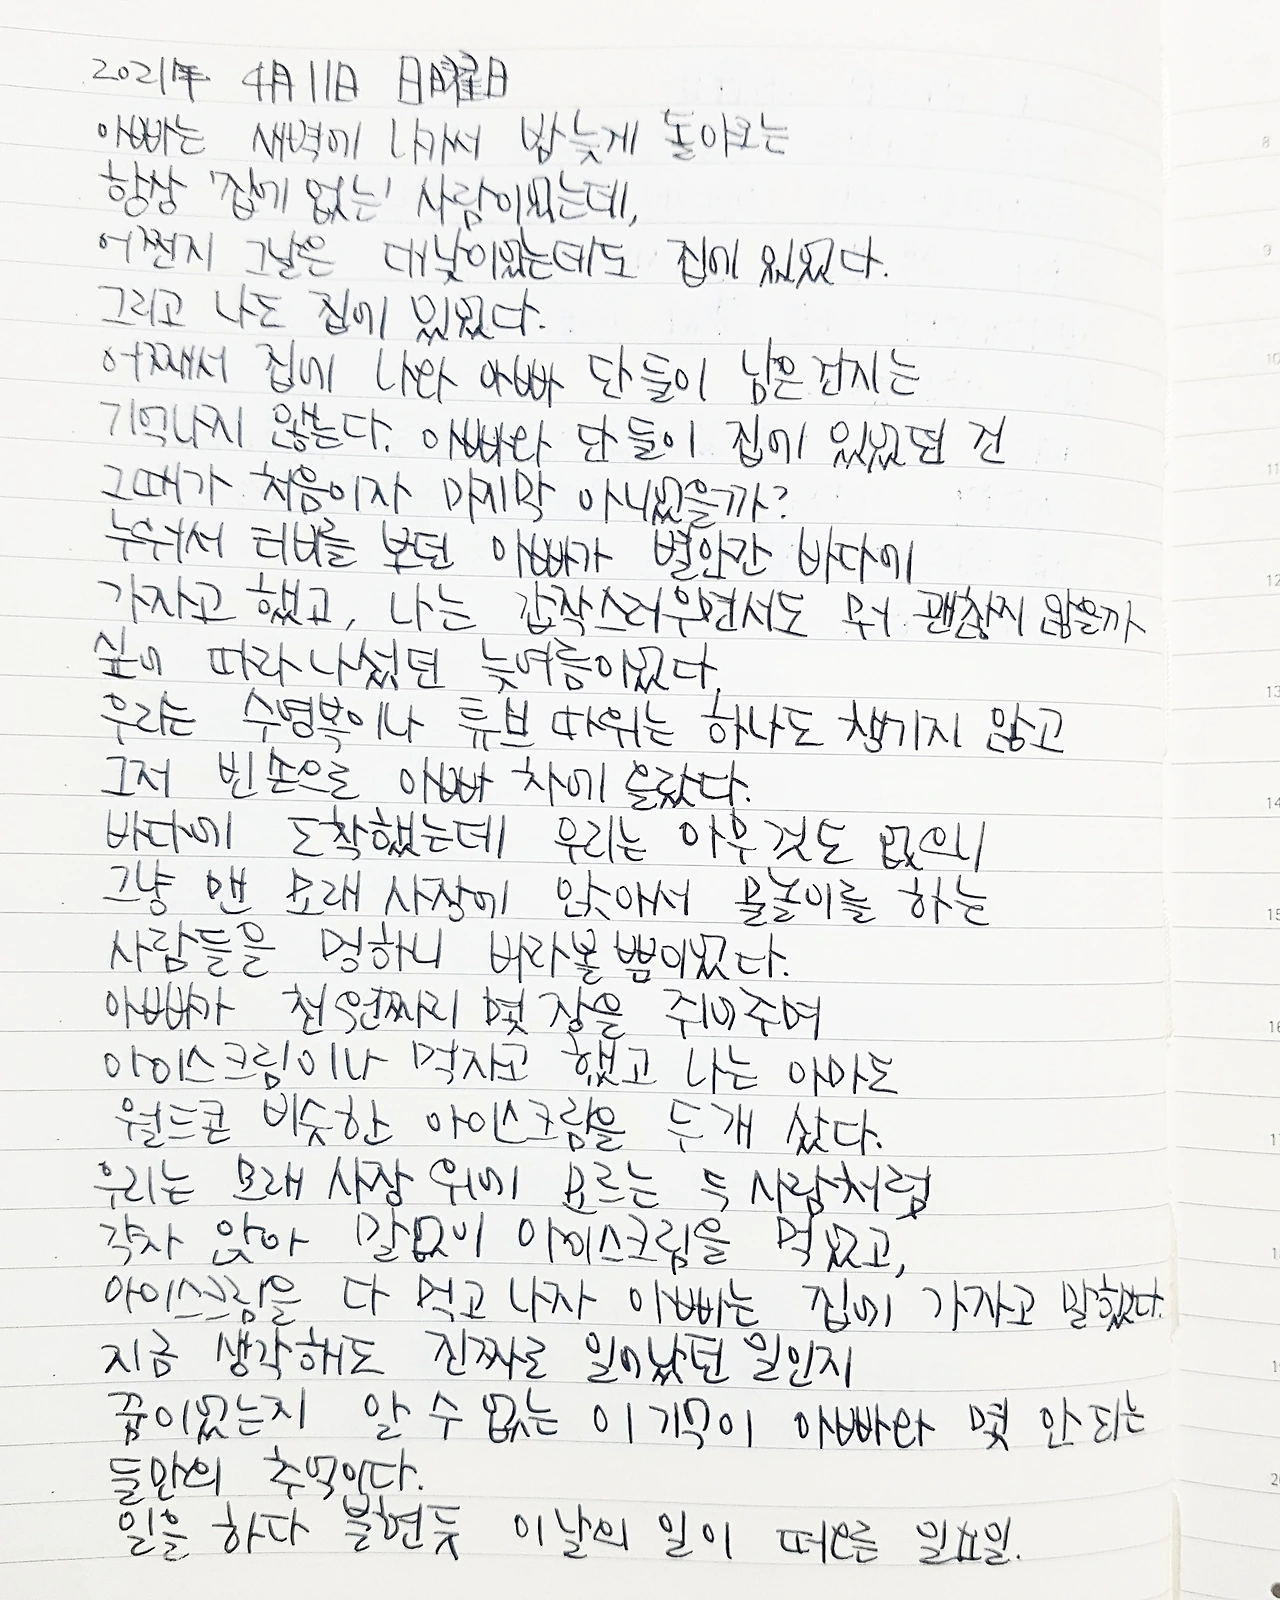 2021年 4月 11日 日曜日
아빠는 새벽에 나가서 밤늦게 돌아오는
항상 '집에 없는' 사람이었는데,
어쩐지 그날은 대낮이었는데도 집에 있었다.
그리고 나도 집에 있었다.
어째서 집에 나와 아빠 단 둘이 남은건지는
기억나지 않는다. 아빠와 단 둘이 집에 있었던 건
그때가 처음이자 마지막 아니었을까?
누워서 티비를 보던 아빠가 별안간 바다에
가자고 했고, 나는 갑작스러우면서도 뭐 괜찮지 않을까
싶어 따라나섰던 늦여름이었다.
우리는 수영복이나 튜브 따위는 하나도 챙기지 않고
그저 빈손으로 아빠 차에 올랐다.
바다에 도착했는데 우리는 아무것도 없으니
그냥 맨 모래 사장에 앉아서 물놀이를 하는
사람들을 멍하니 바라볼 뿐이었다.
아빠가 천원짜리 몇 장을 쥐여주며
아이스크림이나 먹자고 했고 나는 아마도
월드콘 비슷한 아이스크림을 두 개 샀다.
우리는 모래 사장 위에 모르는 두 사람처럼
각자 앉아 말없이 아이스크림을 먹었고,
아이스크림을 다 먹고 나자 아빠는 집에 가자고 말했다.
지금 생각해도 진짜로 일어났던 일인지
꿈이었는지 알 수 없는 이 기억이 아빠와 몇 안 되는
둘만의 추억이다.
일을 하다 불현듯 이날의 일이 떠오른 일요일.